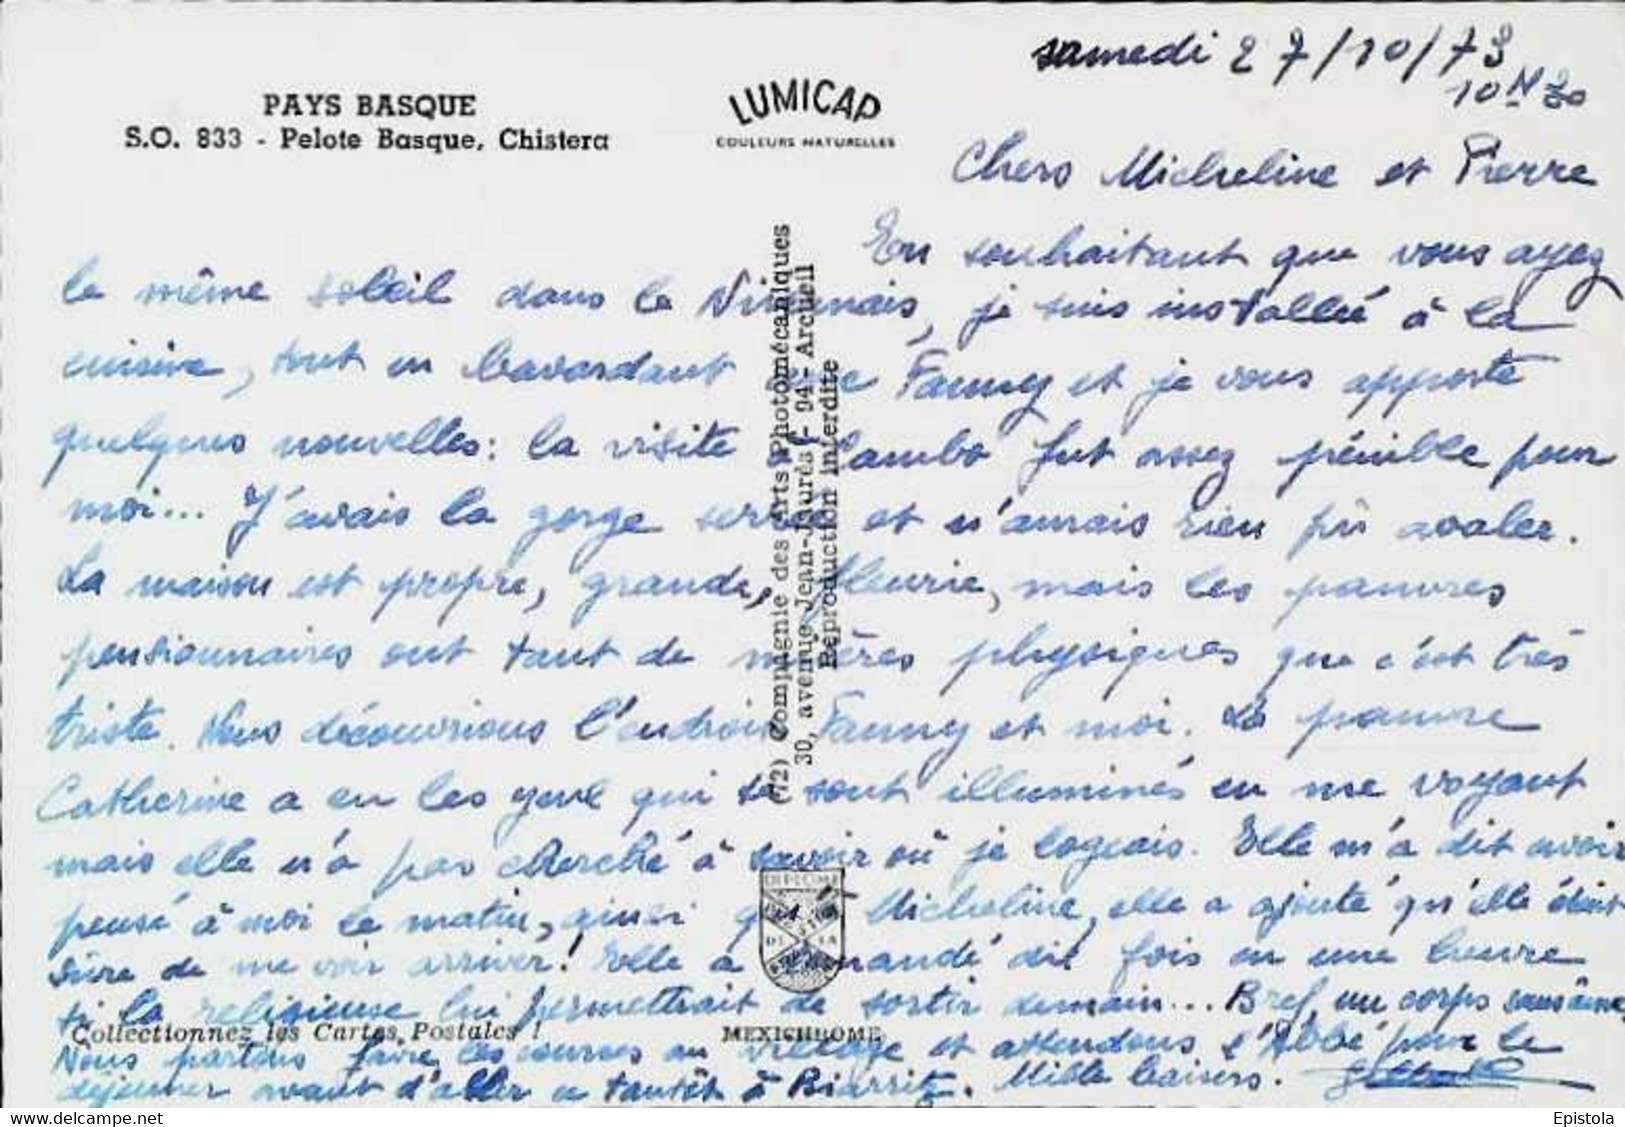 samedi 27/10/73
10H30
PAYS BASQUE
S.O. 833 - Pelote Basque, Chistera
LUMICAP
COULEURS NATURELLES
Chers Micheline et Pierre
En souhaitant que vous ayez
le même soleil dans le Nivernais, je suis installée à la
cuisine, tout en bavardant avec Fanny et je vous apporte
quelques nouvelles: la visite à Cambo fut assez pénible pour
moi... J'avais la gorge serrée et n'aurais rien pû avaler.
La maison est propre, grande, fleurie, mais les pauvres
pensionnaires ont tant de misères physiques que c'est très
triste. Nous découvrions l'endroit Fanny et moi. La pauvre
Catherine a eu les yeux qui se sont illuminés en me voyant
mais elle n'a pas cherché à savoir où je logeais. Elle m'a dit avoir
pensé à moi le matin, ainsi qu'à Micheline, elle a ajouté qu'elle était
sûre de me voir arriver! Elle a demandé dix fois en une heure
si la religieuse lui permettrait de sortir demain... Bref, un corps sans âme
Nous partons faire les courses au village et attendons l'Abbé pour le
déjeuner avant d'aller ce tantôt à Biarritz. Mille baisers.
(72) Compagnie des Arts Photomécaniques
30, avenue Jean-Jaurès - 94 - Arcueil
Reproduction Interdite
DIPLOME
DE LA
Collectionnez les Cartes Postales !
MEXICHROME
Epistola